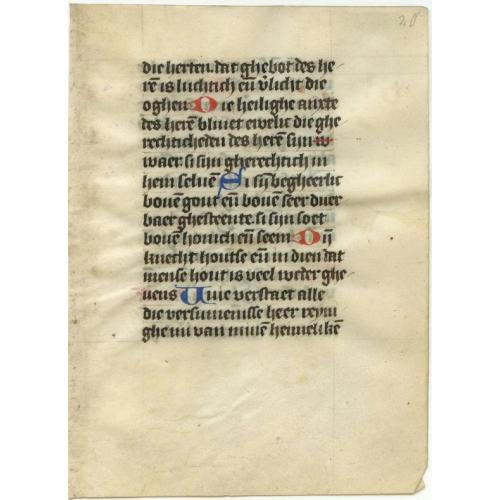 28
die herten. dat ghebot des he
rē is luchtich eñ v̄licht die
oghen Die heilighe anxte
des herē blivet ewelic die ghe
rechticheden des herē sijn w
waer. si sijn gherechtich in
hem seluē Si sij begheerlic
bouē gout eñ bouē seer duer
baer ghesteente. si sijn soet
bouē honich eñ seem Dij
knecht houtse eñ in dien dat
mense hout is veel weder ghe
uens Wie verstaet alle
die versumenisse heer reyni
ghe mi van minē hemelikē